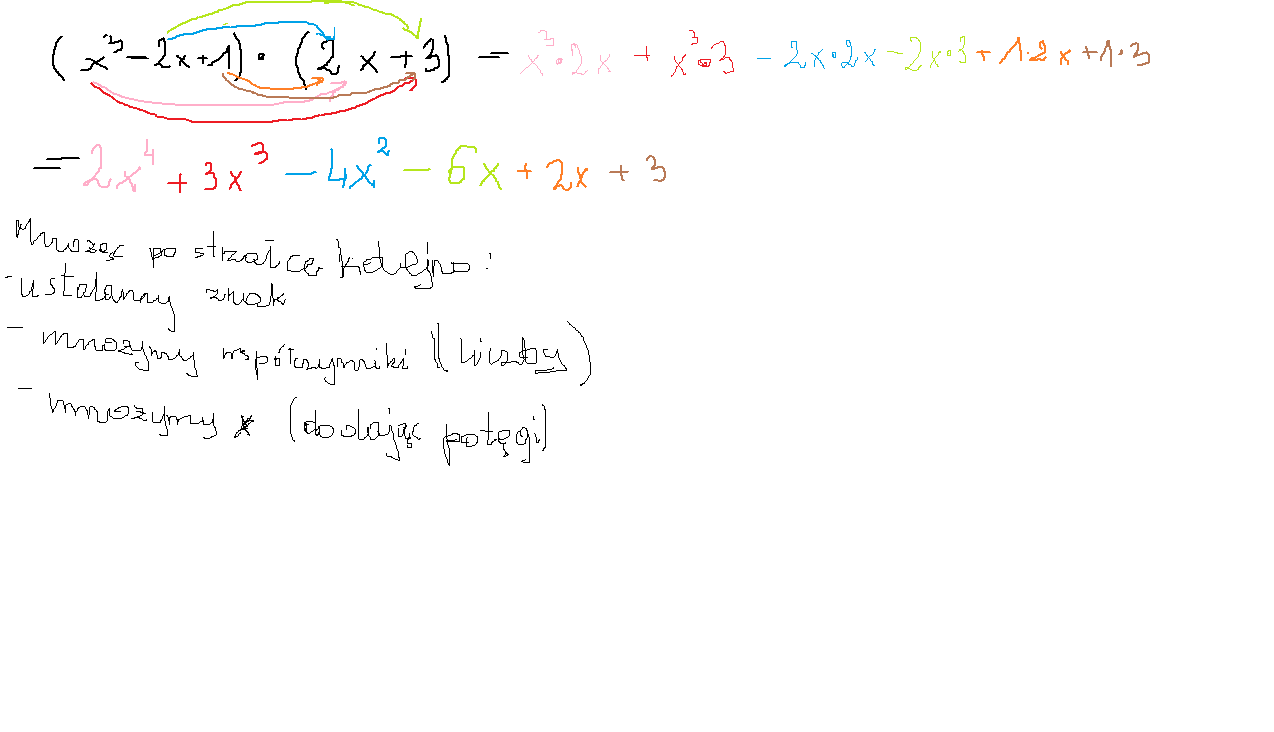 (x³-2x+1)·(2x+3) = x³·2x + x³·3 - 2x·2x - 2x·3 + 1·2x + 1·3
= 2x⁴ + 3x³ - 4x² - 6x + 2x + 3
Mnożąc po strzałce kolejno:
- ustalamy znak
- mnożymy współczynniki (liczby)
- mnożymy x (dodając potęgi)